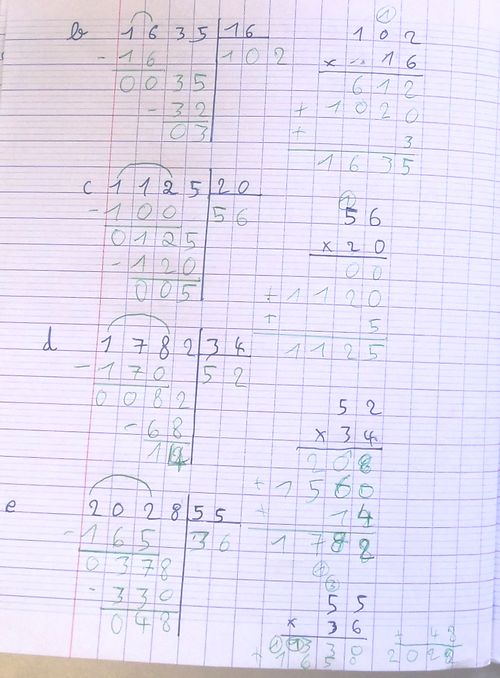 b 1 6 3 5 | 16
- 1 6 | 1 0 2
0 0 3 5
- 3 2
0 3
1
1 0 2
x 1 6
6 1 2
+ 1 0 2 0
+ 3
1 6 3 5
c 1 1 2 5 | 2 0
- 1 0 0 | 5 6
0 1 2 5
- 1 2 0
0 0 5
1
5 6
x 2 0
0 0
+ 1 1 2 0
+ 5
1 1 2 5
d 1 7 8 2 | 3 4
- 1 7 0 | 5 2
0 0 8 2
- 6 8
1 4
5 2
x 3 4
2 0 8
+ 1 5 6 0
+ 1 4
1 7 8 2
e 2 0 2 8 | 5 5
- 1 6 5 | 3 6
0 3 7 8
- 3 3 0
0 4 8
5 5
x 3 6
3 3 0
+ 1 6 5 0
+ 4 8
2 0 2 8